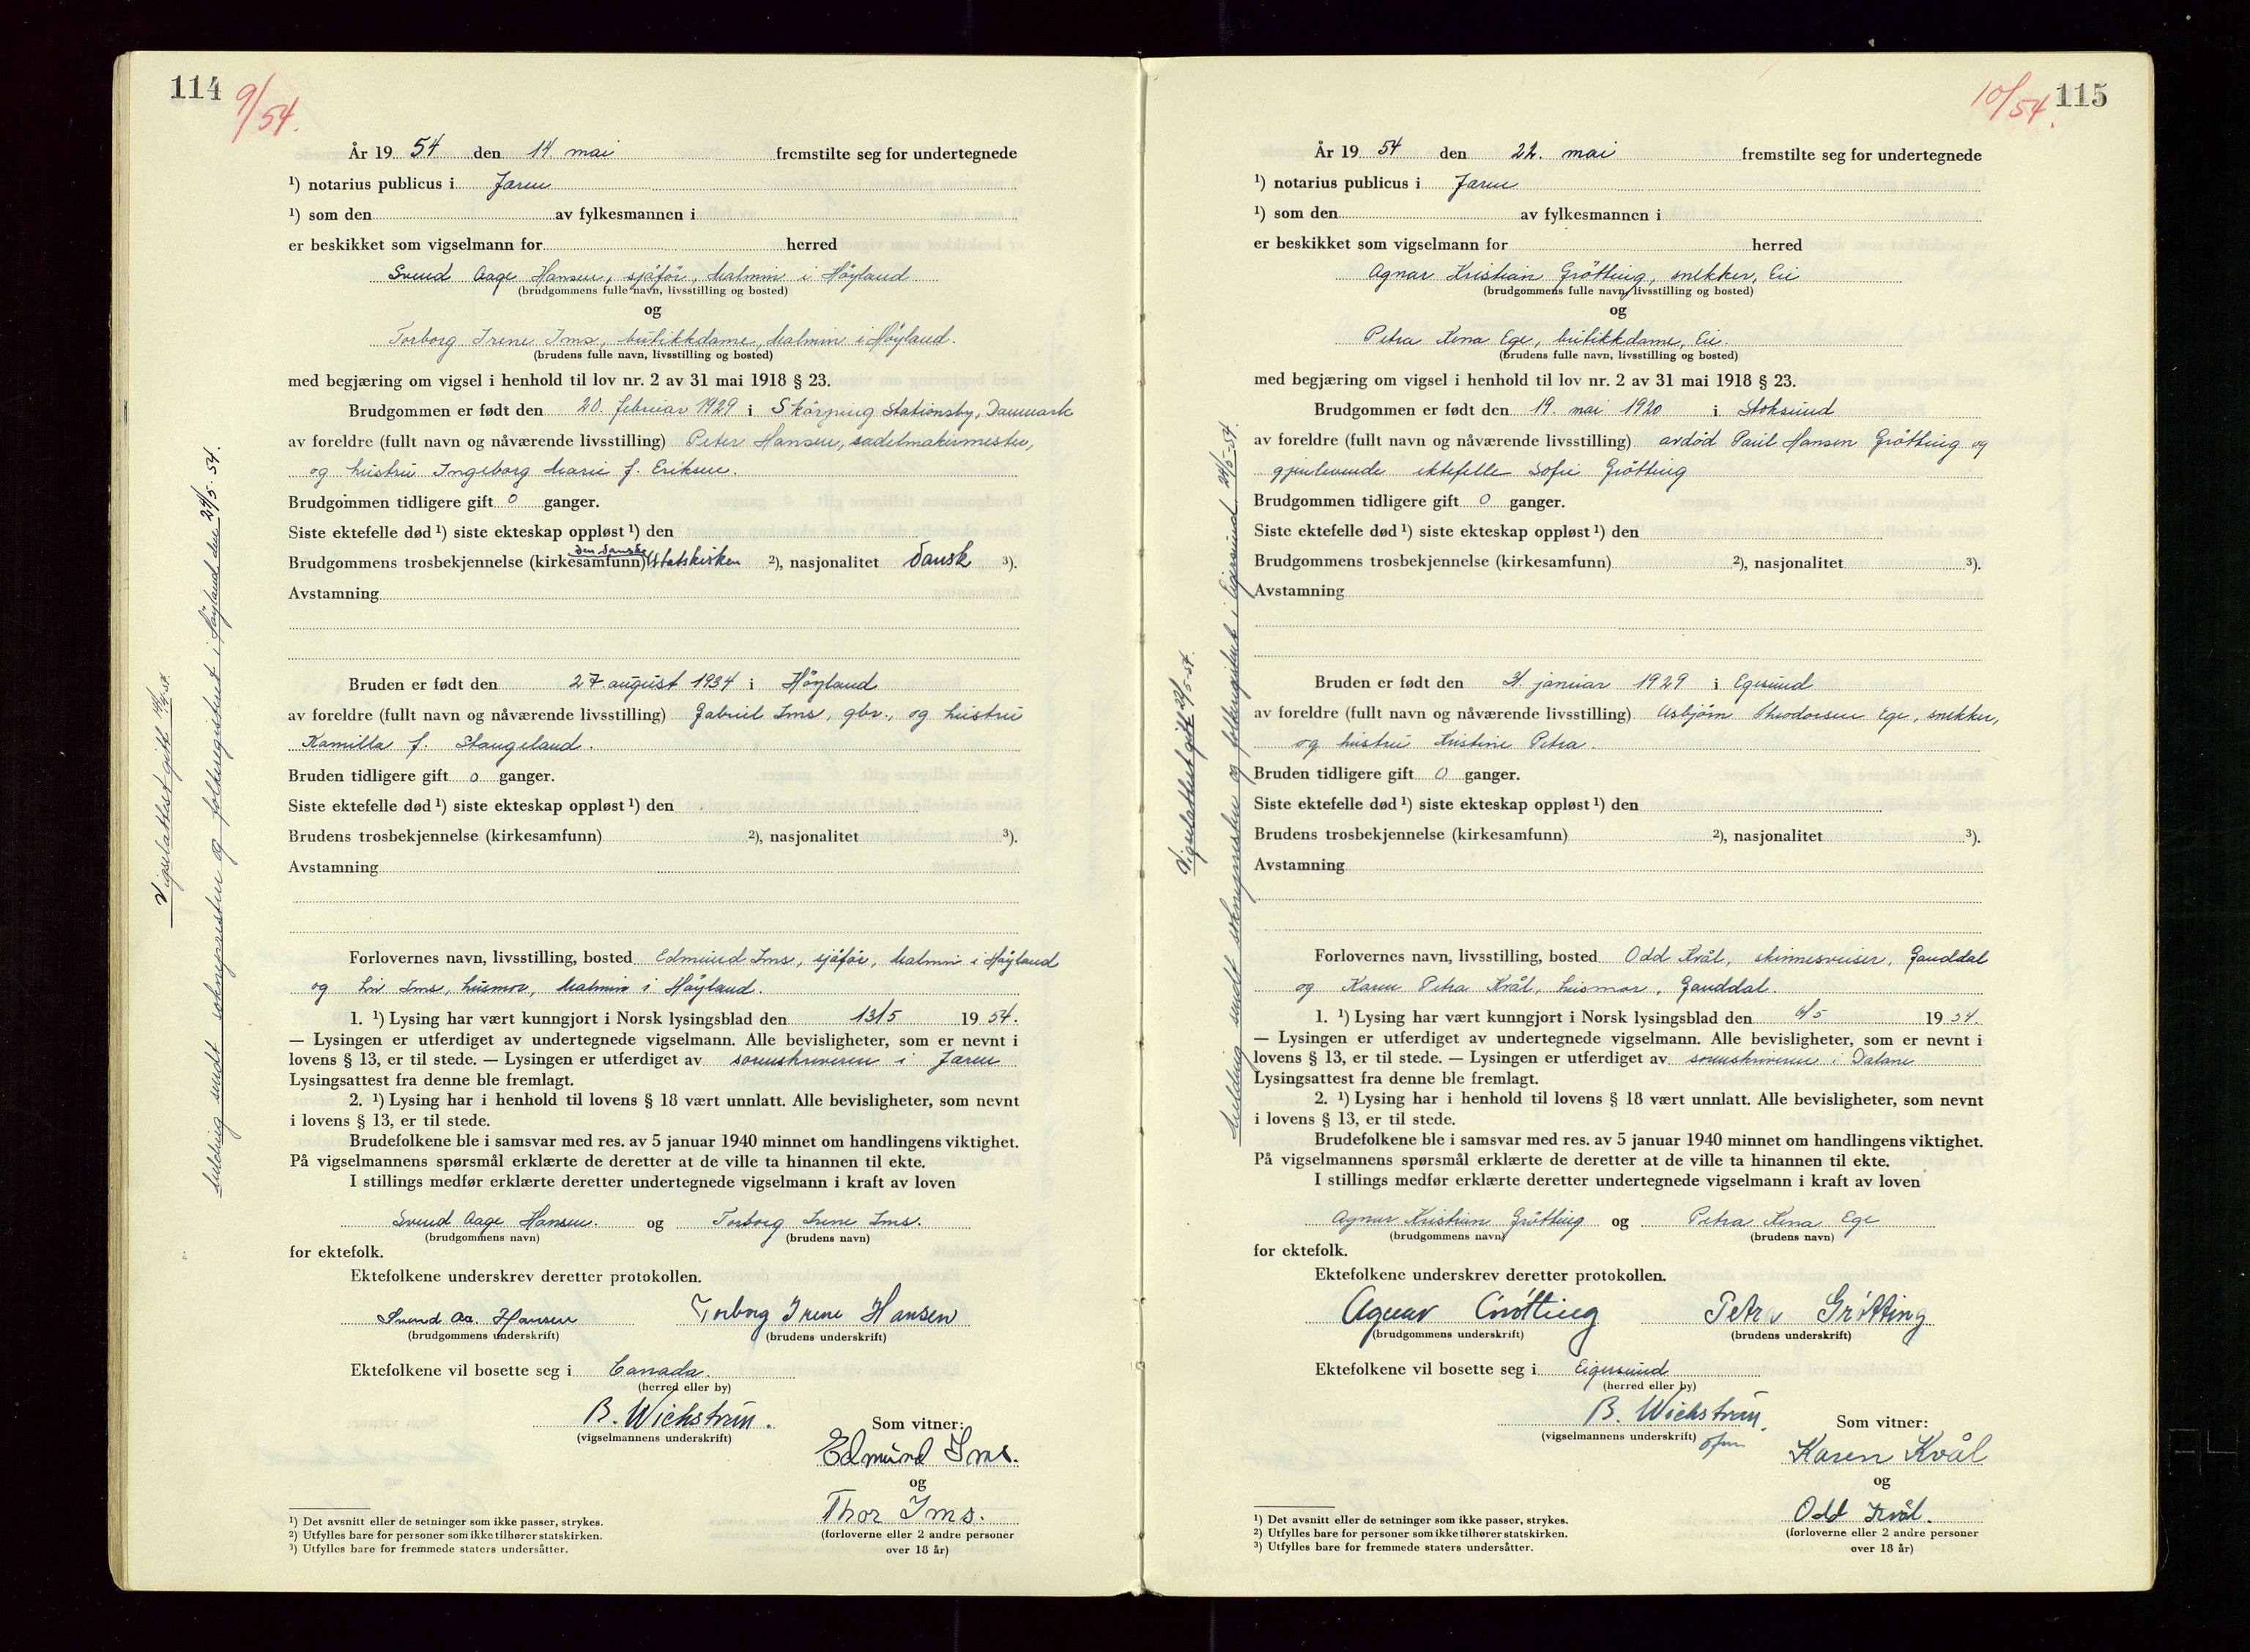 114
9/54.
År 19 54 den 14. mai fremstilte seg for undertegnede
¹) notarius publicus i Jæren
¹) som den av fylkesmannen i
er beskikket som vigselmann for herred
Svend Aage Hansen, sjåfør, Malmin i Høyland
(brudgommens fulle navn, livsstilling og bosted)
og
Torborg Irene Ims, butikkdame, Malmin i Høyland.
(brudens fulle navn, livsstilling og bosted)
med begjæring om vigsel i henhold til lov nr. 2 av 31 mai 1918 § 23.
Brudgommen er født den 20. februar 1929 i Skörping Stationsby, Danmark
av foreldre (fullt navn og nåværende livsstilling) Peter Hansen, sadelmakermester,
og hustru Ingeborg Marie f. Eriksen.
Brudgommen tidligere gift 0 ganger.
Siste ektefelle død ¹) siste ekteskap oppløst ¹) den
den danske
Brudgommens trosbekjennelse (kirkesamfunn) statskirken ²), nasjonalitet dansk ³).
Avstamning
Bruden er født den 27. august 1934 i Høyland
av foreldre (fullt navn og nåværende livsstilling) Gabriel Ims, gbr., og hustru
Kamilla f. Stangeland.
Bruden tidligere gift 0 ganger.
Siste ektefelle død ¹) siste ekteskap oppløst ¹) den
Brudens trosbekjennelse (kirkesamfunn) ²), nasjonalitet ³).
Avstamning
Forlovernes navn, livsstilling, bosted Edmund Ims, sjåfør, Malmin i Høyland
og Liv Ims, husmor, Malmin i Høyland.
1. ¹) Lysing har vært kunngjort i Norsk lysingsblad den 13/5 19 54.
— Lysingen er utferdiget av undertegnede vigselmann. Alle bevisligheter, som er nevnt i
lovens § 13, er til stede. — Lysingen er utferdiget av sorenskriveren i Jæren
Lysingsattest fra denne ble fremlagt.
2. ¹) Lysing har i henhold til lovens § 18 vært unnlatt. Alle bevisligheter, som nevnt
i lovens § 13, er til stede.
Brudefolkene ble i samsvar med res. av 5 januar 1940 minnet om handlingens viktighet.
På vigselmannens spørsmål erklærte de deretter at de ville ta hinannen til ekte.
I stillings medfør erklærte deretter undertegnede vigselmann i kraft av loven
Svend Aage Hansen. og Torborg Irene Ims.
(brudgommens navn) (brudens navn)
for ektefolk.
Ektefolkene underskrev deretter protokollen.
Svend Aa. Hansen Torborg Irene Hansen
(brudgommens underskrift) (brudens underskrift)
Ektefolkene vil bosette seg i Canada.
(herred eller by)
B. Wichstrøm.
(vigselmannens underskrift)
Som vitner:
Edmund Ims.
og
Thor Ims.
(forloverne eller 2 andre personer
over 18 år)
¹) Det avsnitt eller de setninger som ikke passer, strykes.
²) Utfylles bare for personer som ikke tilhører statskirken.
³) Utfylles bare for fremmede staters undersåtter.
Vigselattest gitt
Melding sendt soknepresten og folkeregisteret i Høyland den 24/5-54.
115
10/54.
År 19 54 den 22. mai fremstilte seg for undertegnede
¹) notarius publicus i Jæren
¹) som den av fylkesmannen i
er beskikket som vigselmann for herred
Agnar Kristian Grøtting, snekker, Eie
(brudgommens fulle navn, livsstilling og bosted)
og
Petra Kena Ege, butikkdame, Eie.
(brudens fulle navn, livsstilling og bosted)
med begjæring om vigsel i henhold til lov nr. 2 av 31 mai 1918 § 23.
Brudgommen er født den 19. mai 1920 i Stoksund
av foreldre (fullt navn og nåværende livsstilling) avdød Paul Hansen Grøtting og
gjenlevende ektefelle Sofie Grøtting
Brudgommen tidligere gift 0 ganger.
Siste ektefelle død ¹) siste ekteskap oppløst ¹) den
Brudgommens trosbekjennelse (kirkesamfunn) ²), nasjonalitet ³).
Avstamning
Bruden er født den januar 1929 i Egersund
av foreldre (fullt navn og nåværende livsstilling) Asbjørn Theodorsen Ege, snekker,
og hustru Kristine Petra.
Bruden tidligere gift 0 ganger.
Siste ektefelle død ¹) siste ekteskap oppløst ¹) den
Brudens trosbekjennelse (kirkesamfunn) ²), nasjonalitet ³).
Avstamning
Forlovernes navn, livsstilling, bosted Odd Kvål, skinnesveiser, Ganddal
og Karen Petra Kvål, husmor, Ganddal.
1. ¹) Lysing har vært kunngjort i Norsk lysingsblad den 6/5 19 54.
— Lysingen er utferdiget av undertegnede vigselmann. Alle bevisligheter, som er nevnt i
lovens § 13, er til stede. — Lysingen er utferdiget av sorenskriveren i Dalane
Lysingsattest fra denne ble fremlagt.
2. ¹) Lysing har i henhold til lovens § 18 vært unnlatt. Alle bevisligheter, som nevnt
i lovens § 13, er til stede.
Brudefolkene ble i samsvar med res. av 5 januar 1940 minnet om handlingens viktighet.
På vigselmannens spørsmål erklærte de deretter at de ville ta hinannen til ekte.
I stillings medfør erklærte deretter undertegnede vigselmann i kraft av loven
Agnar Kristian Grøtting og Petra Kena Ege
(brudgommens navn) (brudens navn)
for ektefolk.
Ektefolkene underskrev deretter protokollen.
Agnar Grøtting Petra Grøtting
(brudgommens underskrift) (brudens underskrift)
Ektefolkene vil bosette seg i Eigersund
(herred eller by)
B. Wichstrøm.
(vigselmannens underskrift)
Som vitner:
Karen Kvål
og
Odd Kvål.
(forloverne eller 2 andre personer
over 18 år)
¹) Det avsnitt eller de setninger som ikke passer, strykes.
²) Utfylles bare for personer som ikke tilhører statskirken.
³) Utfylles bare for fremmede staters undersåtter.
Vigselattest gitt 22/5-54.
Melding sendt soknepresten og folkeregisteret i Eigersund 24/5-54.